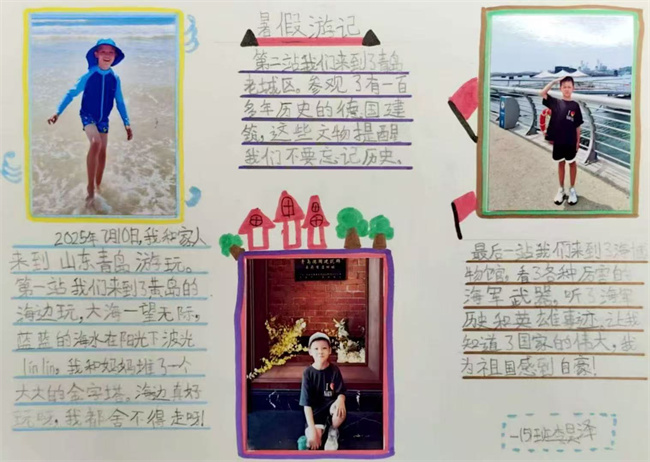 暑假游记
2025年7月10日，我和家人
来到山东青岛游玩。
第一站我们来到了黄岛的
海边玩，大海一望无际，
蓝蓝的海水在阳光下波光
linlin，我和妈妈堆了一个
大大的金字塔，海边真好
玩呀，我都舍不得走呀！
第二站我们来到了青岛
老城区。参观了有一百
多年历史的德国建
筑，这些文物提醒
我们不要忘记历史。
最后一站我们来到了海军博
物馆，看了各种厉害的
海军武器，听了海军
历史和英雄事迹，让我
知道了国家的伟大，我
为祖国感到自豪！
一15班 昊泽